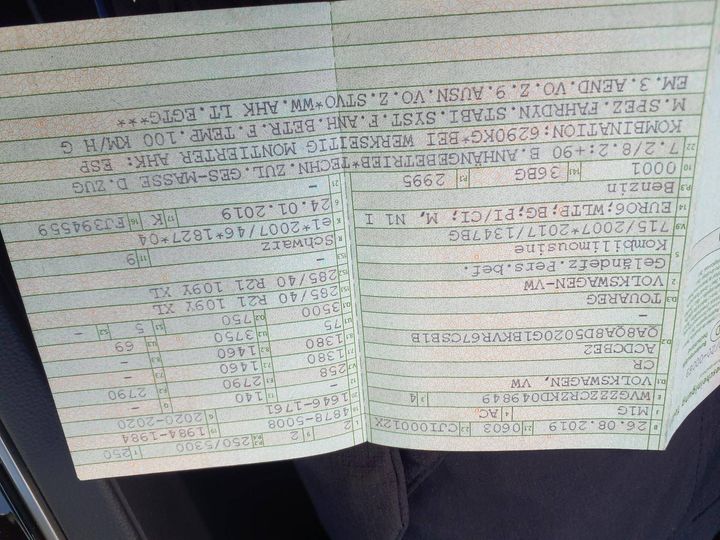 B 26.08.2019 2.1 0603 2.2 CJI00012X
J M1G 4 AC
E WVGZZZCRZKD049849 3 4
D.1 VOLKSWAGEN, VW
CR
D.2 ACDCBE2
QA8QA8D5020G1BKVR67CSB1B
D.3 TOUAREG
–
2 VOLKSWAGEN-VW
5 Geländefz.Pers.bef.
Kombilimousine
V.9 715/2007*2017/1347BG
14 EURO6;WLTP;BG;PI/CI; M, N1 I
P.3 Benzin
10 0001 14.1 36BG P.1 2995
L 2 9 2 P.2/P.4 250/5300 T 250
18 4678-5008 19 1984-1984
20 1646-1761 G 2020-2020
– 13 140 –
V.7 258 F.1 2790 F.2 2790
1380 1460 –
1380 1460 –
U.1 75 U.2 3750 U.3 69
O.1 3500 O.2 750 S.1 5 S.2 –
15.1 285/40 R21 109Y XL
15.2 285/40 R21 109Y XL
15.3 –
R Schwarz 11 9
K e1*2007/46*1827*04
6 24.01.2019 17 K 16 FJ394559
21 –
22 7.2/8.2:+90 B.ANHÄNGEBETRIEB*TECHN.ZUL.GES-MASSE D.ZUG
KOMBINATION:6290KG*BEI WERKSEITIG MONTIERTER AHK: ESP
M.SPEZ.FAHRDYN.STABI.SYST.F.ANH.BETR.F.TEMP.100 KM/H G
EM.3.AEND.VO.Z.9.AUSN.VO.Z.STVO*WW.AHK LT.EGTG***